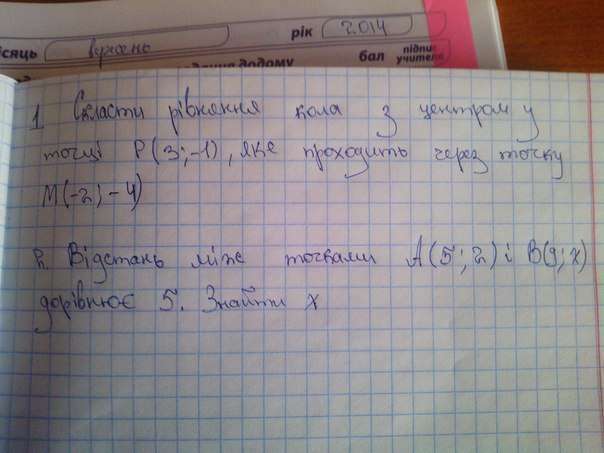 ісяць вужень рік 2014
додому бал підпис учителя
1 Скласти рівняння кола з центром у
точці P(3;-1), яке проходить через точку
M(-2;-4)
2. Відстань між точками A(5;2) і B(9;x)
дорівнює 5. Знайти x